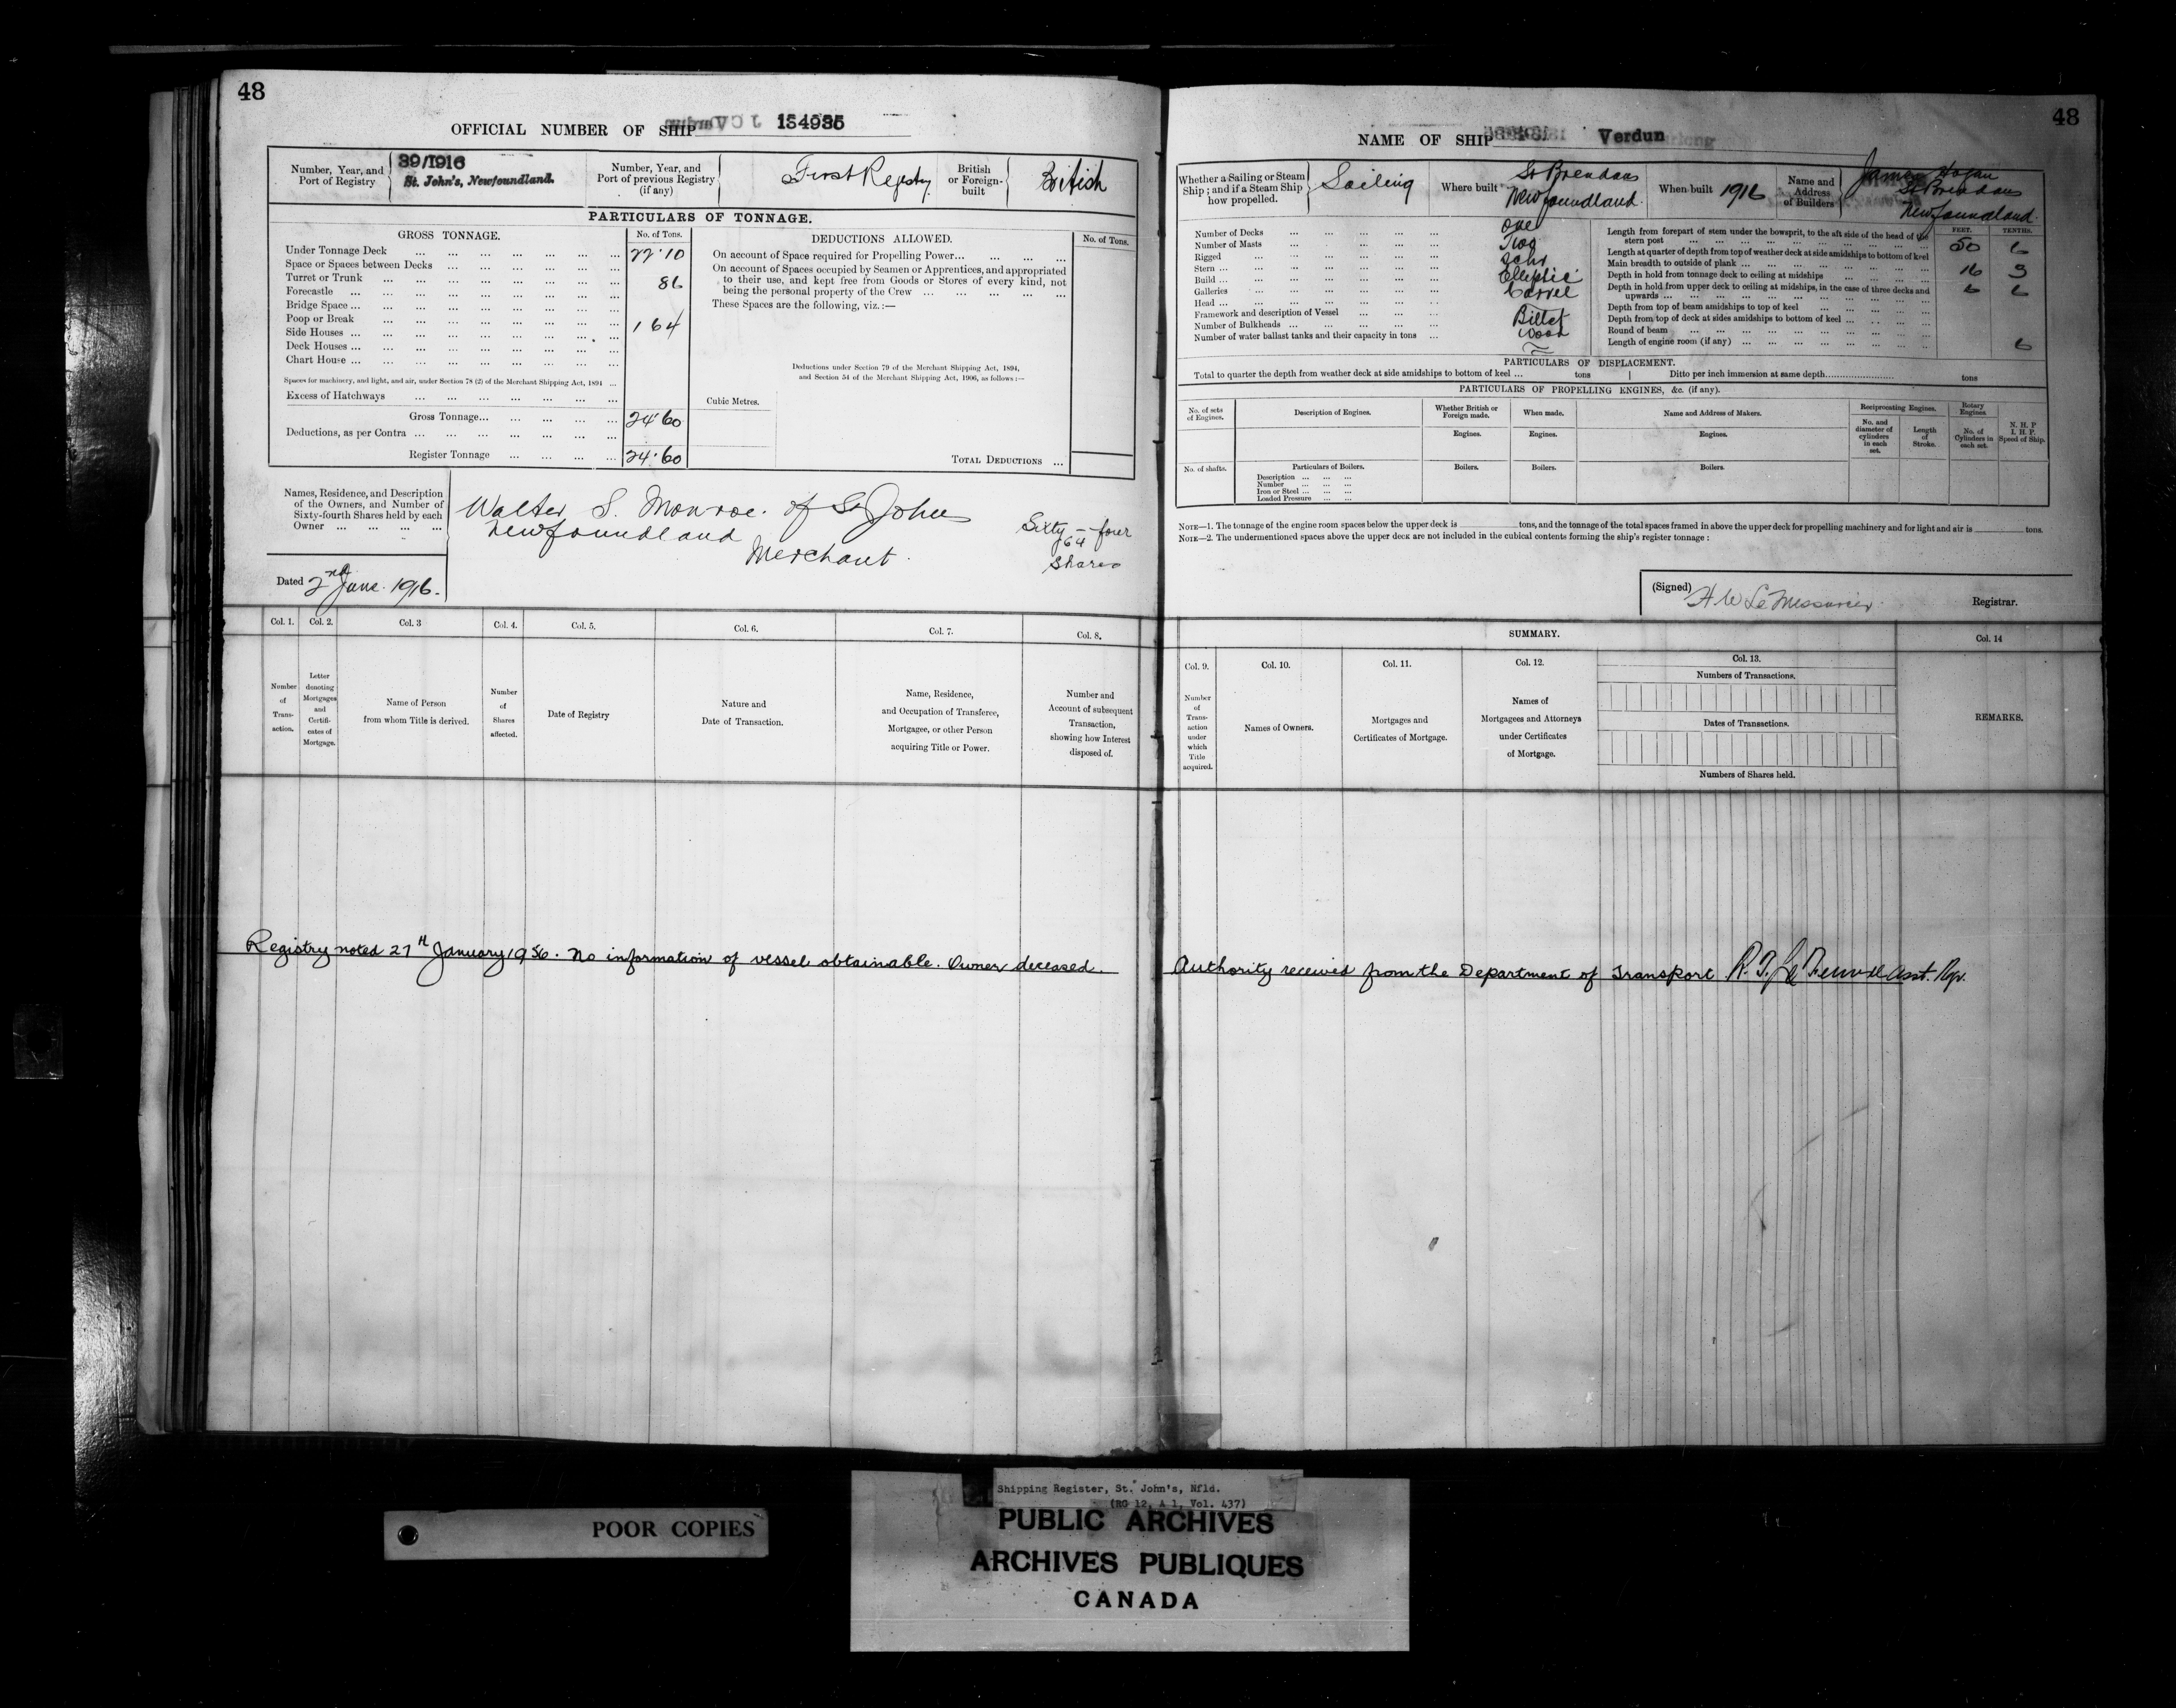 48
OFFICIAL NUMBER OF SHIP 134935
Number, Year, and Port of Registry
39/1916
St. John's, Newfoundland.
Number, Year, and Port of previous Registry (if any)
First Registry
British or Foreign-built
British
PARTICULARS OF TONNAGE.
GROSS TONNAGE.
No. of Tons.
Under Tonnage Deck ... 22.10
Space or Spaces between Decks
Turret or Trunk ... 86
Forecastle
Bridge Space
Poop or Break ... 1 64
Side Houses
Deck Houses
Chart House
Spaces for machinery, and light, and air, under Section 78 (2) of the Merchant Shipping Act, 1894
Excess of Hatchways
Gross Tonnage... 24.60
Deductions, as per Contra
Register Tonnage ... 24.60
DEDUCTIONS ALLOWED.
No. of Tons.
On account of Space required for Propelling Power...
On account of Spaces occupied by Seamen or Apprentices, and appropriated
to their use, and kept free from Goods or Stores of every kind, not
being the personal property of the Crew
These Spaces are the following, viz.:—
Deductions under Section 79 of the Merchant Shipping Act, 1894,
and Section 54 of the Merchant Shipping Act, 1906, as follows:—
Cubic Metres.
TOTAL DEDUCTIONS ...
Names, Residence, and Description
of the Owners, and Number of
Sixty-fourth Shares held by each
Owner
Walter S. Monroe. of St Johns
Newfoundland
Merchant.
Sixty-four
64
Shares
Dated 2nd June. 1916.
Col. 1.
Col. 2.
Col. 3
Col. 4.
Col. 5.
Col. 6.
Col. 7.
Col. 8.
Number of Transaction.
Letter denoting Mortgages and Certificates of Mortgage.
Name of Person from whom Title is derived.
Number of Shares affected.
Date of Registry
Nature and Date of Transaction.
Name, Residence, and Occupation of Transferee, Mortgagee, or other Person acquiring Title or Power.
Number and Account of subsequent Transaction, showing how Interest disposed of.
Registry noted 27th January 1956. No information of vessel obtainable. Owner deceased.
48
NAME OF SHIP Verdun
Whether a Sailing or Steam Ship; and if a Steam Ship how propelled.
Sailing
Where built
St Brendans
Newfoundland.
When built 1916
Name and Address of Builders
James Hogan
St Brendans
Newfoundland.
Number of Decks ... One
Number of Masts ... Two
Rigged ... Schr
Stern ... Elliptic
Build ... Carvel
Galleries
Head ... Billet
Framework and description of Vessel ... Wood
Number of Bulkheads
Number of water ballast tanks and their capacity in tons
FEET.
TENTHS.
Length from forepart of stem under the bowsprit, to the aft side of the head of the stern post ... 50 6
Length at quarter of depth from top of weather deck at side amidships to bottom of keel
Main breadth to outside of plank ... 16 3
Depth in hold from tonnage deck to ceiling at midships ... 6 6
Depth in hold from upper deck to ceiling at midships, in the case of three decks and upwards
Depth from top of beam amidships to top of keel
Depth from top of deck at sides amidships to bottom of keel
Round of beam ... 6
Length of engine room (if any)
PARTICULARS OF DISPLACEMENT.
Total to quarter the depth from weather deck at side amidships to bottom of keel ... tons
Ditto per inch immersion at same depth... tons
PARTICULARS OF PROPELLING ENGINES, &c. (if any).
No. of sets of Engines.
Description of Engines.
Whether British or Foreign made.
When made.
Name and Address of Makers.
Reciprocating Engines.
Rotary Engines
No. and diameter of cylinders in each set.
Length of Stroke.
No. of Cylinders in each set.
N. H. P
I. H. P.
Speed of Ship.
Engines.
Engines.
Engines.
No. of shafts.
Particulars of Boilers.
Boilers.
Boilers.
Boilers.
Description
Number
Iron or Steel
Loaded Pressure
NOTE—1. The tonnage of the engine room spaces below the upper deck is tons, and the tonnage of the total spaces framed in above the upper deck for propelling machinery and for light and air is tons.
NOTE—2. The undermentioned spaces above the upper deck are not included in the cubical contents forming the ship's register tonnage:
(Signed) H W Le Messurier Registrar.
SUMMARY.
Col. 9.
Col. 10.
Col. 11.
Col. 12.
Col. 13.
Col. 14
Number of Transaction under which Title acquired.
Names of Owners.
Mortgages and Certificates of Mortgage.
Names of Mortgagees and Attorneys under Certificates of Mortgage.
Numbers of Transactions.
Dates of Transactions.
Numbers of Shares held.
REMARKS.
Authority received from the Department of Transport. Asst. Rgr.
POOR COPIES
Shipping Register, St. John's, Nfld.
(RG 12, A 1, Vol. 437)
PUBLIC ARCHIVES
ARCHIVES PUBLIQUES
CANADA